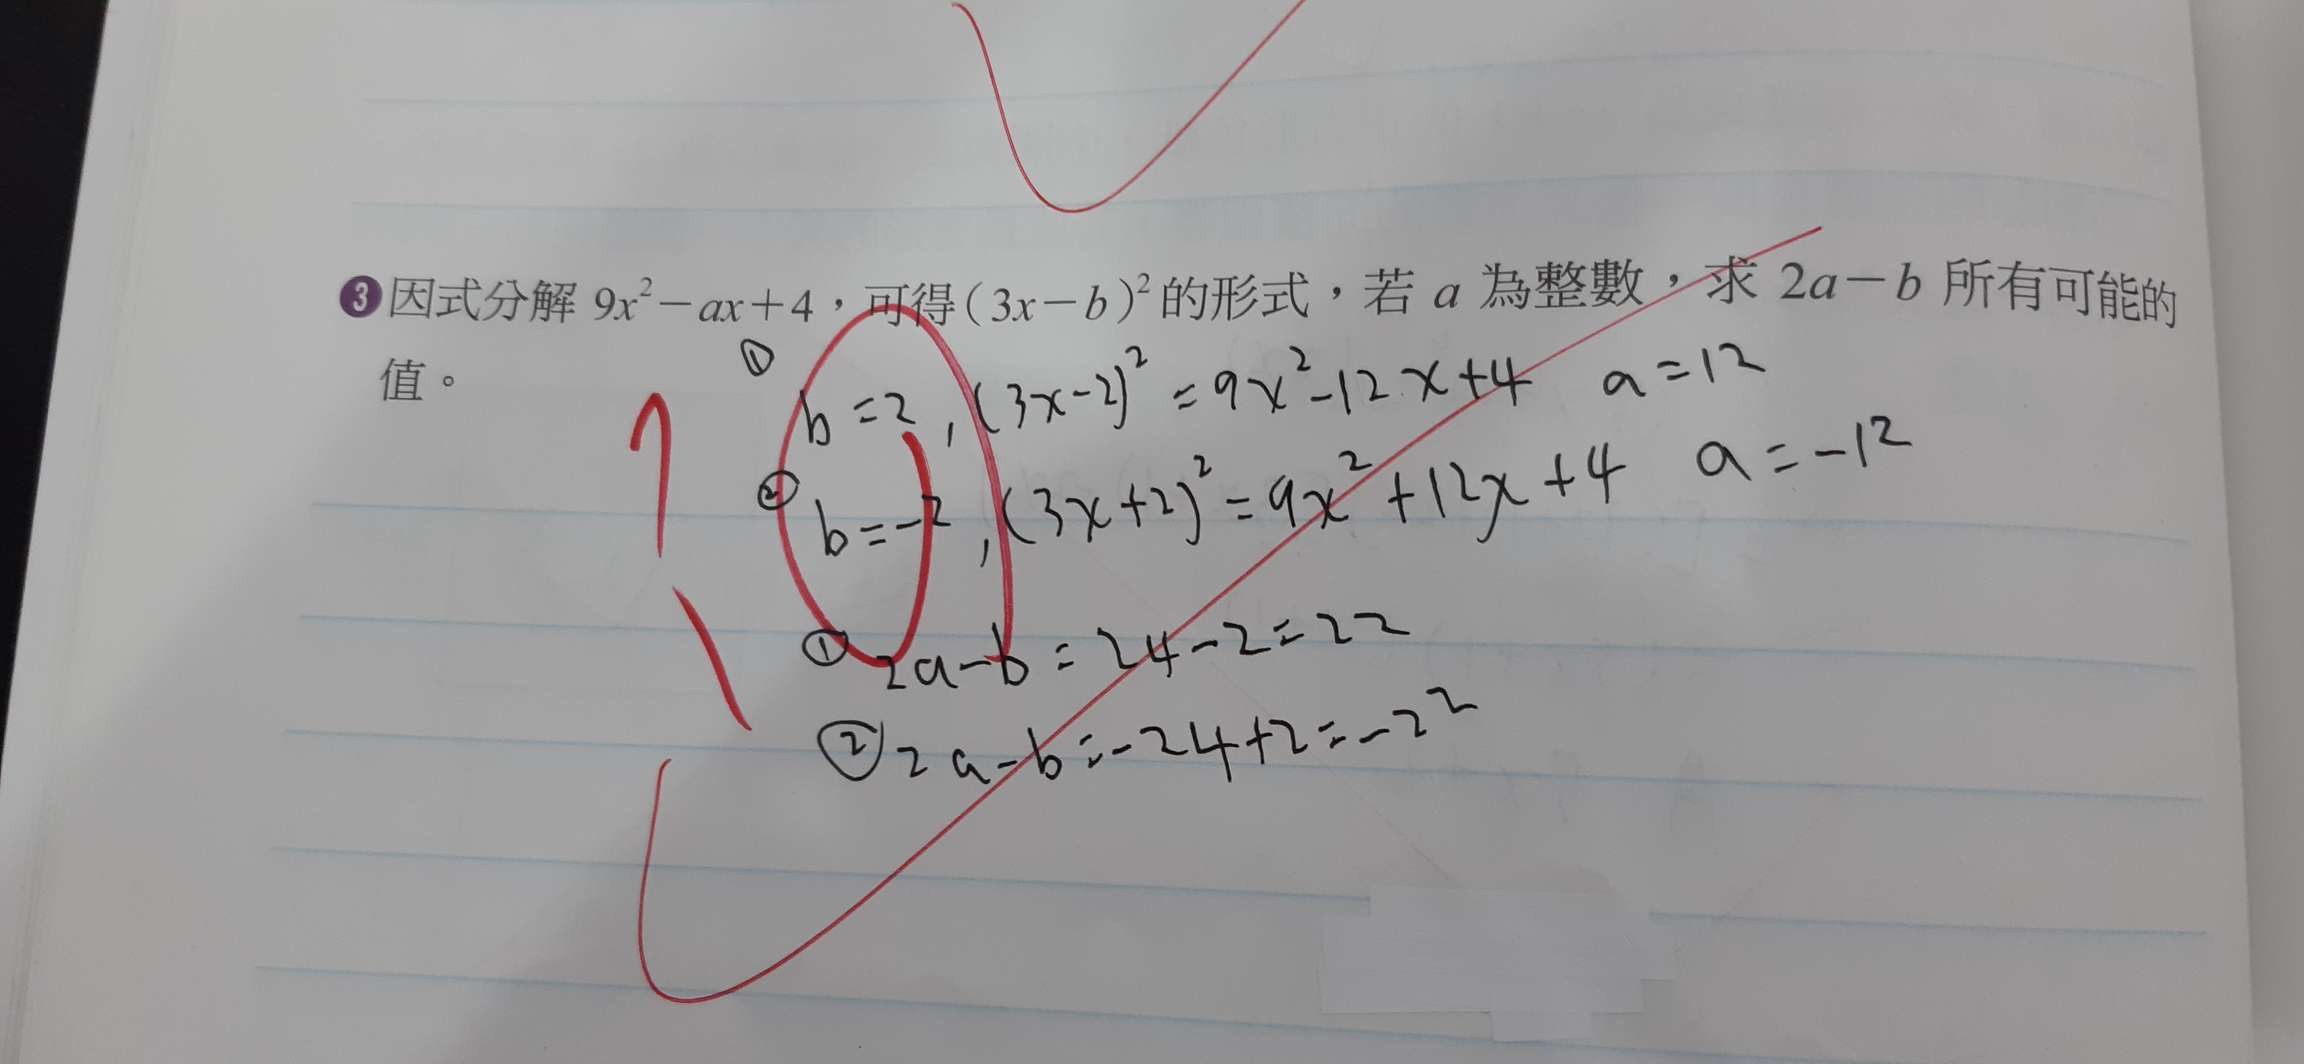 ❸因式分解 9x²－ax＋4，可得（3x－b）²的形式，若 a 為整數，求 2a－b 所有可能的
值。
① b=2, (3x-2)² = 9x²-12x+4 a=12
② b=-2, (3x+2)² = 9x²+12x+4 a=-12
① 2a-b = 24-2=22
② 2a-b=-24+2=-22